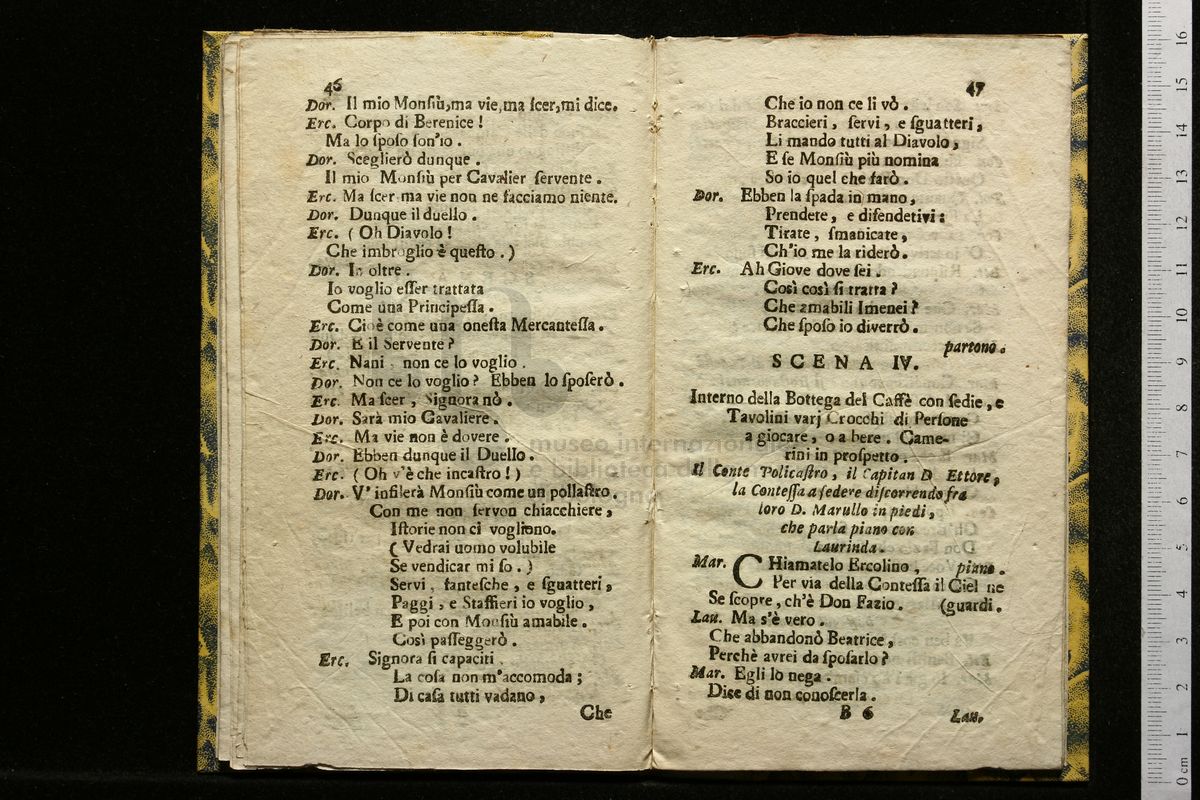 46
Dor. Il mio Monſiù,ma vie,ma ſcer,mi dice.
Erc. Corpo di Berenice !
Ma lo ſpoſo ſon'io .
Dor. Sceglierò dunque .
Il mio Monſiù per Cavalier ſervente .
Erc. Ma ſcer ma vie non ne facciamo niente.
Dor. Dunque il duello .
Erc. ( Oh Diavolo !
Che imbroglio è queſto . )
Dor. In oltre .
Io voglio eſſer trattata
Come una Principeſſa .
Erc. Cioè come una oneſta Mercanteſſa .
Dor. E il Servente ?
Erc. Nani , non ce lo voglio .
Dor. Non ce lo voglio ? Ebben lo ſpoſerò .
Erc. Ma ſcer , Signora nò .
Dor. Sarà mio Cavaliere .
Erc. Ma vie non è dovere .
Dor. Ebben dunque il Duello .
Erc. ( Oh v'è che incaſtro ! )
Dor. V' infilerà Monſiù come un pollaſtro.
Con me non ſervon chiacchiere ,
Iſtorie non ci vogliono.
( Vedrai uomo volubile
Se vendicar mi ſo . )
Servi , fanteſche , e ſguatteri ,
Paggi , e Staffieri io voglio ,
E poi con Monſiù amabile .
Così paſſeggerò .
Erc. Signora ſi capaciti ,
La coſa non m'accomoda ;
Di caſa tutti vadano ,
Che
47
Che io non ce li vò .
Braccieri , ſervi , e ſguatteri ,
Li mando tutti al Diavolo ,
E ſe Monſiù più nomina
So io quel che farò .
Dor. Ebben la ſpada in mano ,
Prendete , e difendetivi :
Tirate , ſmanicate ,
Ch'io me la riderò .
Erc. Ah Giove dove ſei .
Così così ſi tratta ?
Che amabili Imenei ?
Che ſpoſo io diverrò .
partono .
SCENA IV.
Interno della Bottega del Caffè con ſedie , e
Tavolini varj Crocchi di Perſone
a giocare , o a bere . Came-
rini in proſpetto .
Il Conte Policaſtro , il Capitan D. Ettore,
la Conteſſa a ſedere diſcorrendo fra
loro D. Marullo in piedi ,
che parla piano con
Laurinda .
Mar. CHiamatelo Ercolino , piano .
Per via della Conteſſa il Ciel ne
Se ſcopre , ch'è Don Fazio . (guardi .
Lau. Ma s'è vero .
Che abbandonò Beatrice ,
Perchè avrei da ſpoſarlo ?
Mar. Egli lo nega .
Dice di non conoſcerla .
B 6
Lau.
museo internazionale
e biblioteca della
0 cm 1 2 3 4 5 6 7 8 9 10 11 12 13 14 15 16